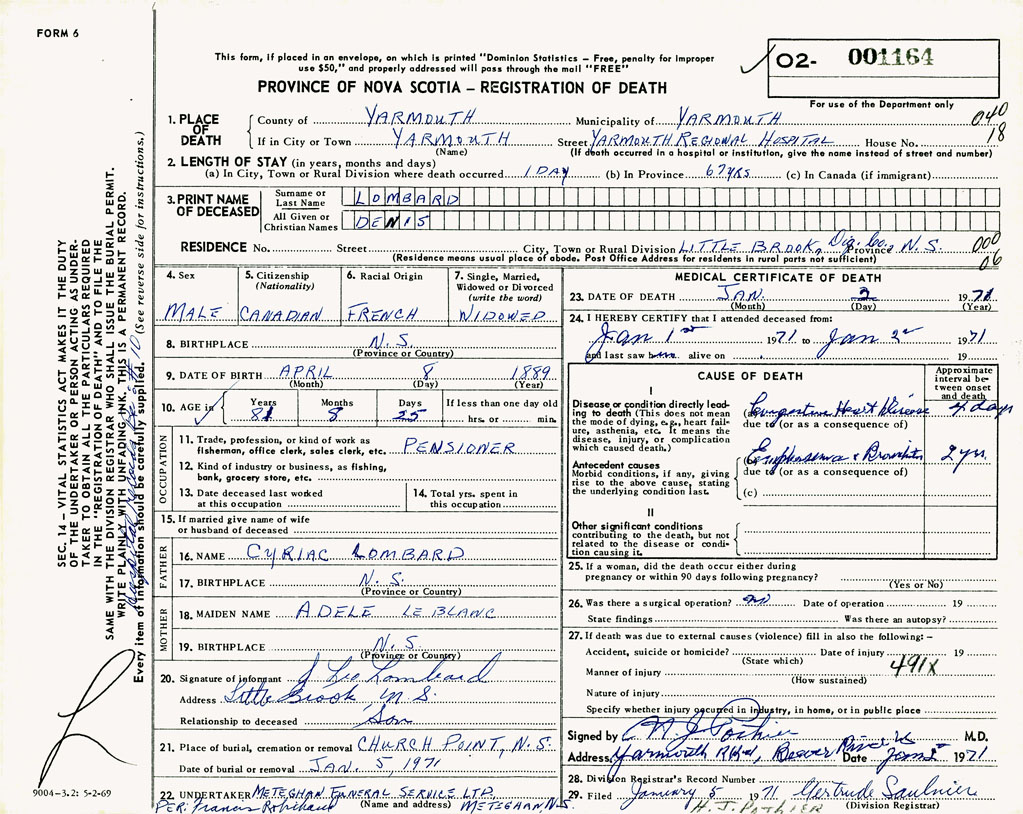 FORM 6
This form, if placed in an envelope, on which is printed "Dominion Statistics – Free, penalty for improper
use $50," and properly addressed will pass through the mail "FREE"
O2- 001164
PROVINCE OF NOVA SCOTIA – REGISTRATION OF DEATH
For use of the Department only
1. PLACE OF DEATH
County of YARMOUTH Municipality of YARMOUTH 040
If in City or Town YARMOUTH Street YARMOUTH REGIONAL HOSPITAL House No. 18
(Name) (If death occurred in a hospital or institution, give the name instead of street and number)
2. LENGTH OF STAY (in years, months and days)
(a) In City, Town or Rural Division where death occurred 1 DAY (b) In Province 67 YRS (c) In Canada (if immigrant)
3. PRINT NAME OF DECEASED
Surname or Last Name LOMBARD
All Given or Christian Names DENIS
RESIDENCE No. Street City, Town or Rural Division LITTLE BROOK, Dig. Co. Province N.S. 000
(Residence means usual place of abode. Post Office Address for residents in rural parts not sufficient) 06
4. Sex MALE
5. Citizenship (Nationality) CANADIAN
6. Racial Origin FRENCH
7. Single, Married, Widowed or Divorced (write the word) WIDOWED
8. BIRTHPLACE N.S.
(Province or Country)
9. DATE OF BIRTH APRIL 8 1889
(Month) (Day) (Year)
10. AGE in Years 81 Months 8 Days 25 If less than one day old hrs. or min.
OCCUPATION
11. Trade, profession, or kind of work as
fisherman, office clerk, sales clerk, etc. PENSIONER
12. Kind of industry or business, as fishing,
bank, grocery store, etc.
13. Date deceased last worked
at this occupation
14. Total yrs. spent in
this occupation
15. If married give name of wife
or husband of deceased
FATHER
16. NAME CYRIAC LOMBARD
17. BIRTHPLACE N.S.
(Province or Country)
MOTHER
18. MAIDEN NAME ADELE LE BLANC
19. BIRTHPLACE N.S.
(Province or Country)
20. Signature of informant J Leo Lombard
Address Little Brook, N S.
Relationship to deceased Son
21. Place of burial, cremation or removal CHURCH POINT, N.S.
Date of burial or removal JAN. 5, 1971
22. UNDERTAKER METEGHAN FUNERAL SERVICE LTD.
PER: Francis Robichaud (Name and address) METEGHAN, N.S.
MEDICAL CERTIFICATE OF DEATH
23. DATE OF DEATH JAN. 2 1971
(Month) (Day) (Year)
24. I HEREBY CERTIFY that I attended deceased from:
Jan 1st 1971 to Jan 2 1971
and last saw alive on 19
CAUSE OF DEATH
Approximate interval between onset and death
I
Disease or condition directly leading to death (This does not mean
the mode of dying, e.g., heart failure, asthenia, etc. It means the
disease, injury, or complication
which caused death.)
(a) Congestive Heart Disease 4 days
due to (or as a consequence of)
Antecedent causes
Morbid conditions, if any, giving
rise to the above cause, stating
the underlying condition last.
Emphysema + Bronchitis 2 yrs.
due to (or as a consequence of)
(c)
II
Other significant conditions
contributing to the death, but not
related to the disease or condition causing it.
25. If a woman, did the death occur either during
pregnancy or within 90 days following pregnancy?
(Yes or No)
26. Was there a surgical operation? no Date of operation 19
State findings Was there an autopsy?
27. If death was due to external causes (violence) fill in also the following: –
Accident, suicide or homicide? Date of injury 19
(State which)
Manner of injury 491X
(How sustained)
Nature of injury
Specify whether injury occurred in industry, in home, or in public place
Signed by H J Pothier M.D.
Address Yarmouth Beaver River Date Jan 1971
28. Division Registrar's Record Number
29. Filed January 5 1971 Gertrude Saulnier
H. J. POTHIER (Division Registrar)
SEC. 14 – VITAL STATISTICS ACT MAKES IT THE DUTY
OF THE UNDERTAKER OR PERSON ACTING AS UNDERTAKER TO OBTAIN ALL THE PARTICULARS REQUIRED
IN THE "REGISTRATION OF DEATH" AND TO FILE THE
SAME WITH THE DIVISION REGISTRAR WHO SHALL ISSUE THE BURIAL PERMIT.
WRITE PLAINLY WITH UNFADING INK. THIS IS A PERMANENT RECORD.
Every item of information should be carefully supplied. (See reverse side for instructions.)
9004-3.2: 5-2-69